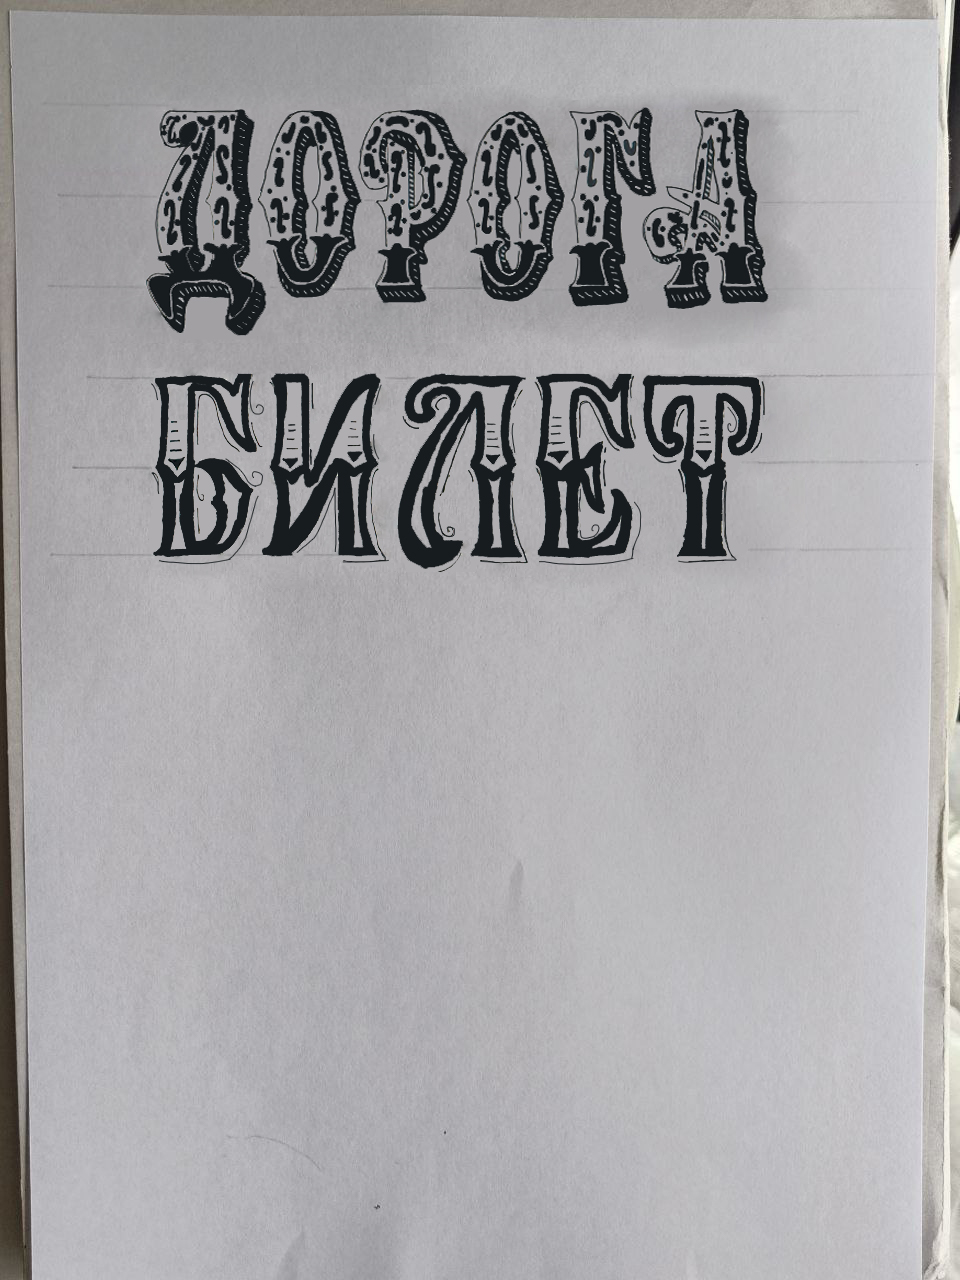 ДОРОГА
БИЛЕТ